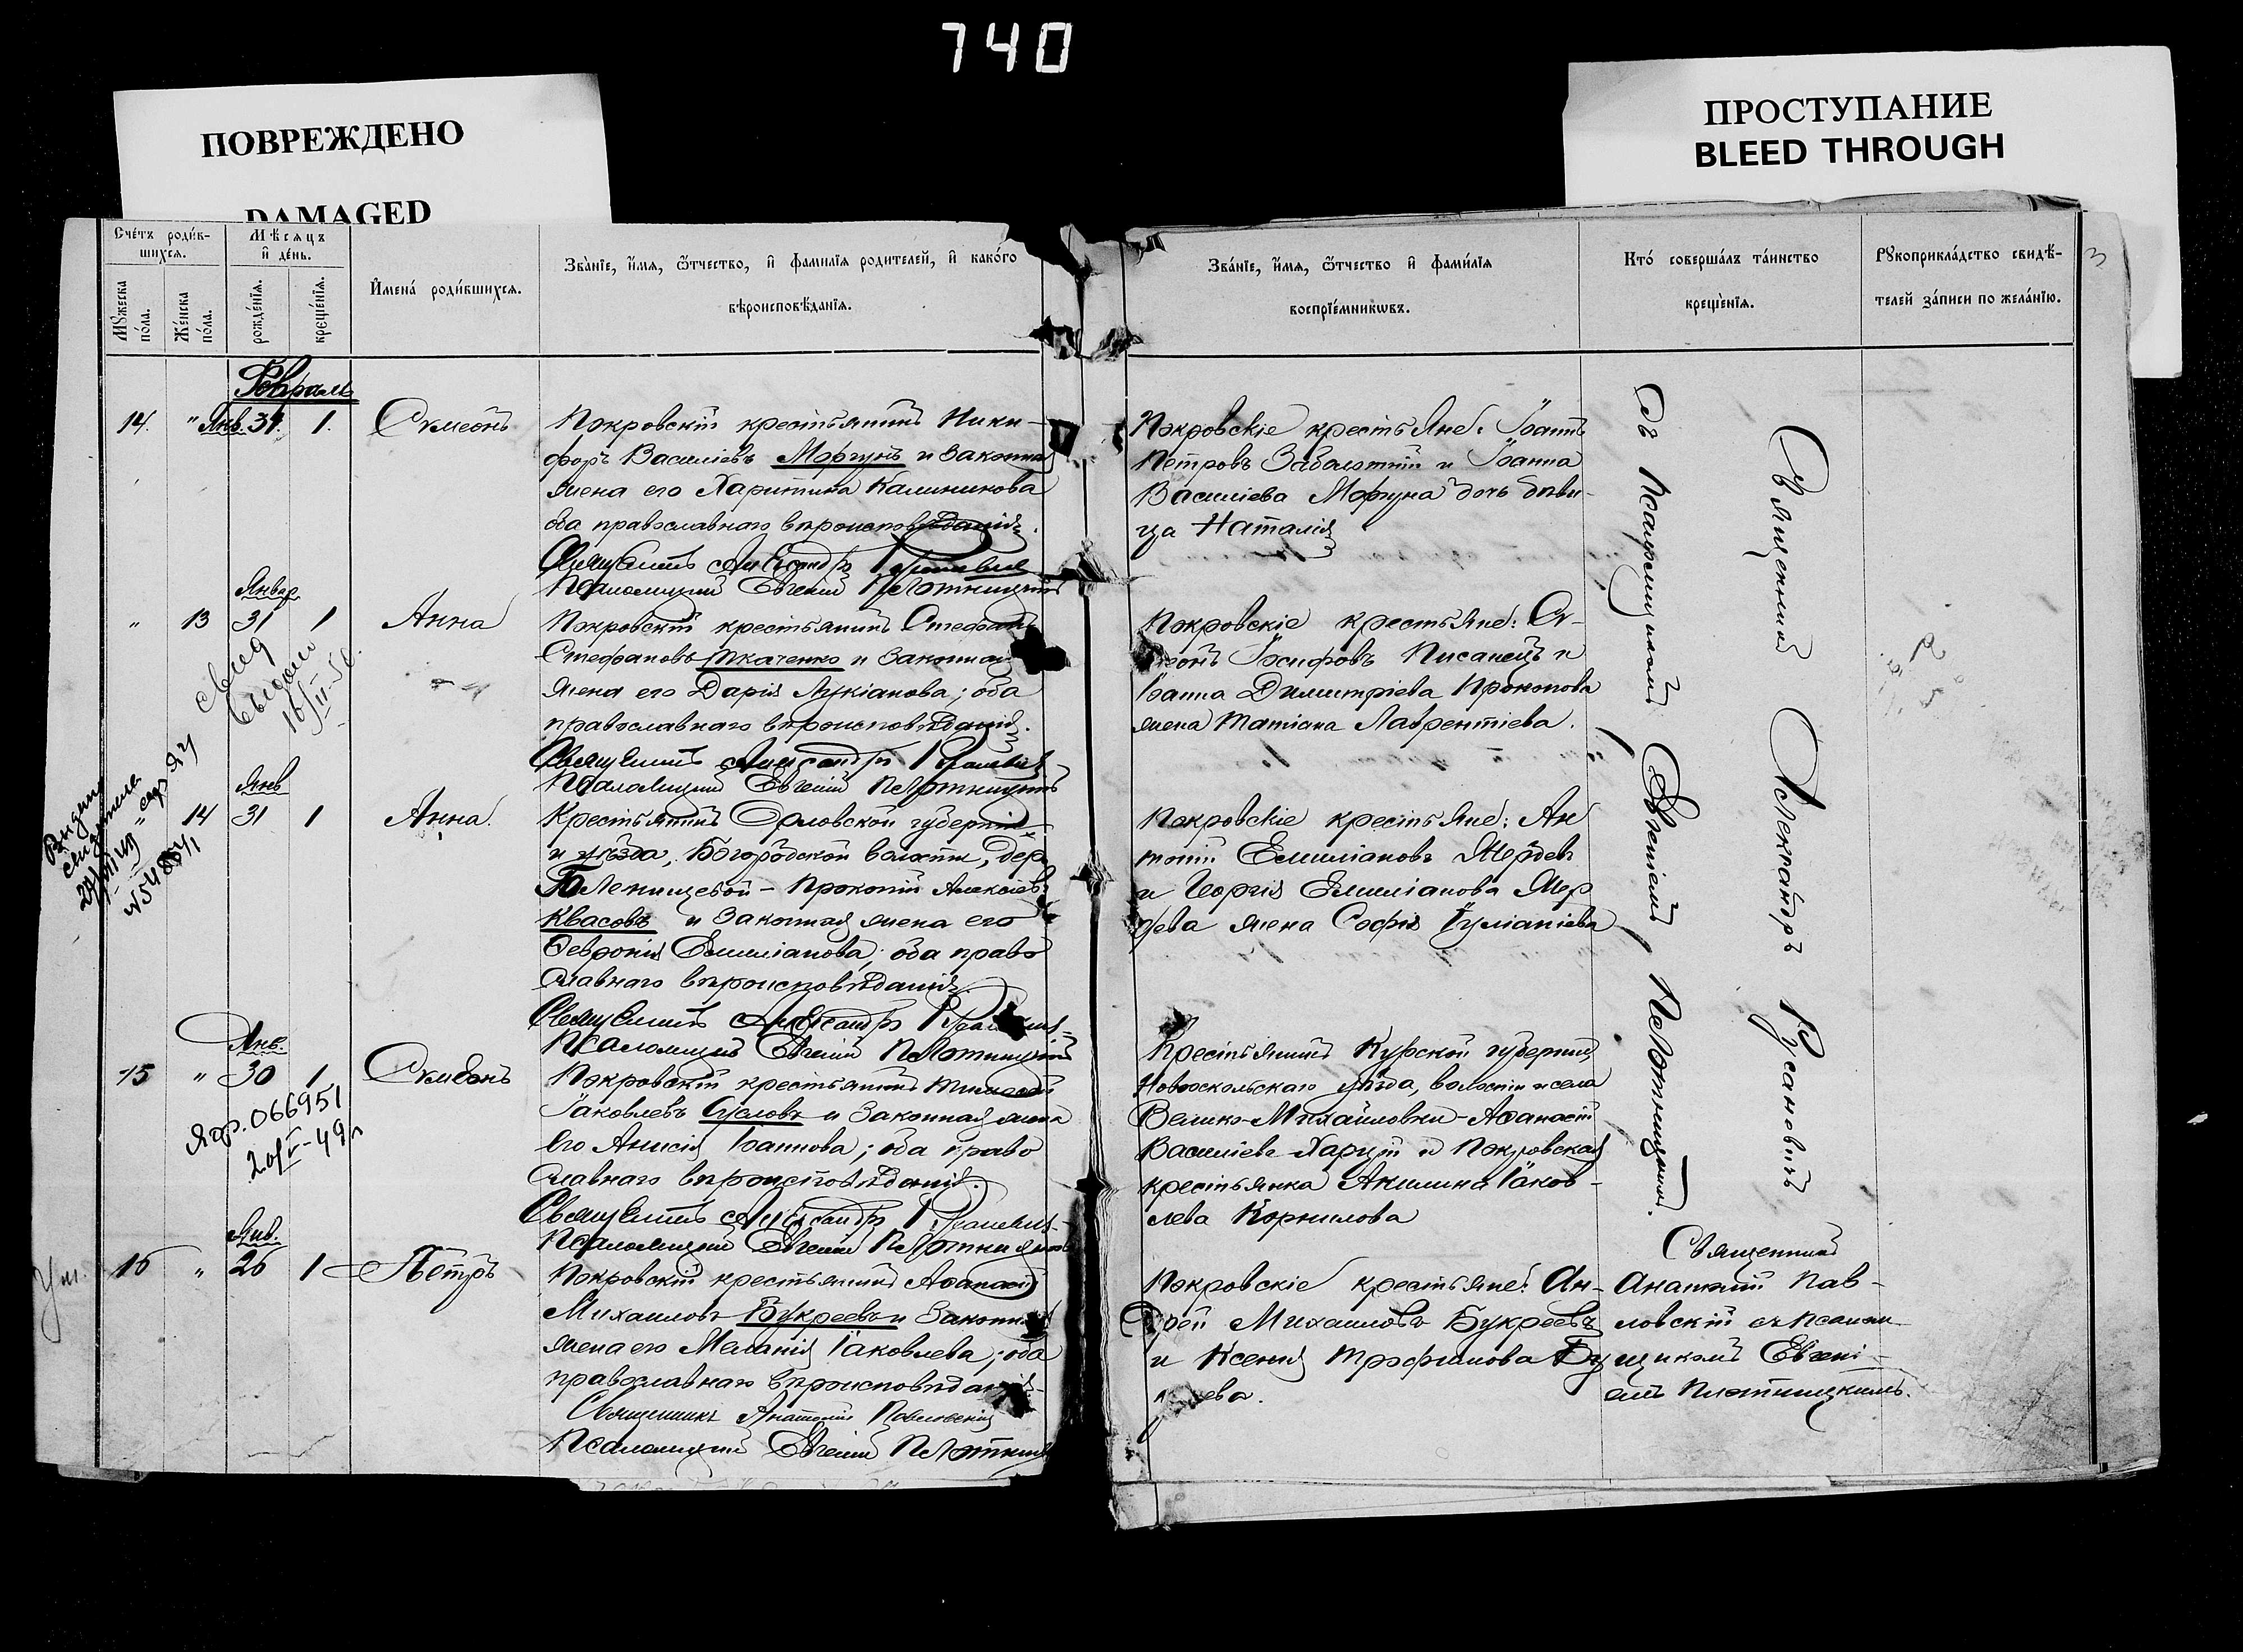 740
ПОВРЕЖДЕНО
DAMAGED
ПРОСТУПАНИЕ
BLEED THROUGH
Сче́тъ роди́в-
шихся.
Мѣ́сяцъ
и҆ де́нь.
И҆мена́ роди́вшихся.
Зва́нїе, и҆́мя, ѻ҆́тчество, и҆ фами́лїя роди́телей, и҆ како́гѡ
вѣроисповѣ́данїя.
Мꙋ́жеска по́ла.
Же́нска по́ла.
рожде́нїя.
креще́нїя.
Зва́нїе, и҆́мя, ѻ҆́тчество и҆ фами́лїя
воспрїе́мникѡвъ.
Кто́ соверша́лъ та́инство
креще́нїя.
Рꙋкоприкла́дство свидѣ́-
телей за́писи по жела́нїю.
3
Февраль
14. " Янв. 31. 1. Сѵмеонъ
Покровскій крестьянинъ Ники-
форъ Василіевъ Моргунъ и законная
жена его Харитина Калиникова
оба православнаго вѣроисповѣданія.
Священникъ Александръ
Псаломщикъ Евгеній Плотницкій
Покровскіе крестьяне: Іоаннъ
Петровъ Заболотній и Іоанна
Василіева Моргуна дочь дѣви-
ца Наталія
Январ.
" 13 31 1 Анна
Покровскій крестьянинъ Стефанъ
Стефановъ Ткаченко и законная
жена его Дарія Лукіанова; оба
православнаго вѣроисповѣданія.
Священникъ Александръ
Псаломщикъ Евгеній Плотницкій
Покровскіе крестьяне: Сѵ-
меонъ Іосифовъ Писанецъ и
Іоанна Димитріева Прокопова
жена Татіана Лаврентіева.
свид
выдано
16/II-56.
Янв
14 31 1 Анна.
Крестьянинъ Орловской губерніи
и уѣзда, Богородской волости, дер.
Голенищевой - Прокопій Алексіевъ
Квасовъ и законная жена его
Февронія Емиліанова; оба право
славнаго вѣроисповѣданія.
Священникъ Александръ
Псаломщикъ Евгеній Плотницкій
Покровскіе крестьяне: Ан
тоній Емиліановъ Жердевъ
и Георгія Емиліанова Жер
дева жена Софія Іуліаніева
Выдано
Янв.
15 " 30 1 Сѵмеонъ
Покровскій крестьянинъ Тимофей
Іаковлевъ Сусловъ и законная жена
его Анисія Іоаннова; оба право
славнаго вѣроисповѣданія.
Священникъ Александръ
Псаломщикъ Евгеній Плотницкій
Крестьянинъ Курской губерніи,
Новооскольскаго уѣзда, волости и села
Велико-Михайловки - Аѳанасій
Василіевъ и Покровская
крестьянка Акилина Іаков-
лева Корнилова
066951
20/V-49г
Янв.
Ум. 16 " 26 1 Петръ
Покровскій крестьянинъ Аѳанасій
Михаиловъ Букреевъ и законная
жена его Меланія Іаковлева; оба
православнаго вѣроисповѣданія.
Священникъ Анатолій Павловскій
Псаломщикъ Евгеній Плотниц
Покровскіе крестьяне: Ан-
дрей Михаиловъ Букреевъ
и Ксенія Трофимова Бу
Священникъ Александръ Русановичъ
съ Псаломщикомъ Евгеніемъ Плотницкимъ.
Священникъ
Анатолій Пав-
ловскій съ псалом
щикомъ Евгені-
емъ Плотницкимъ.